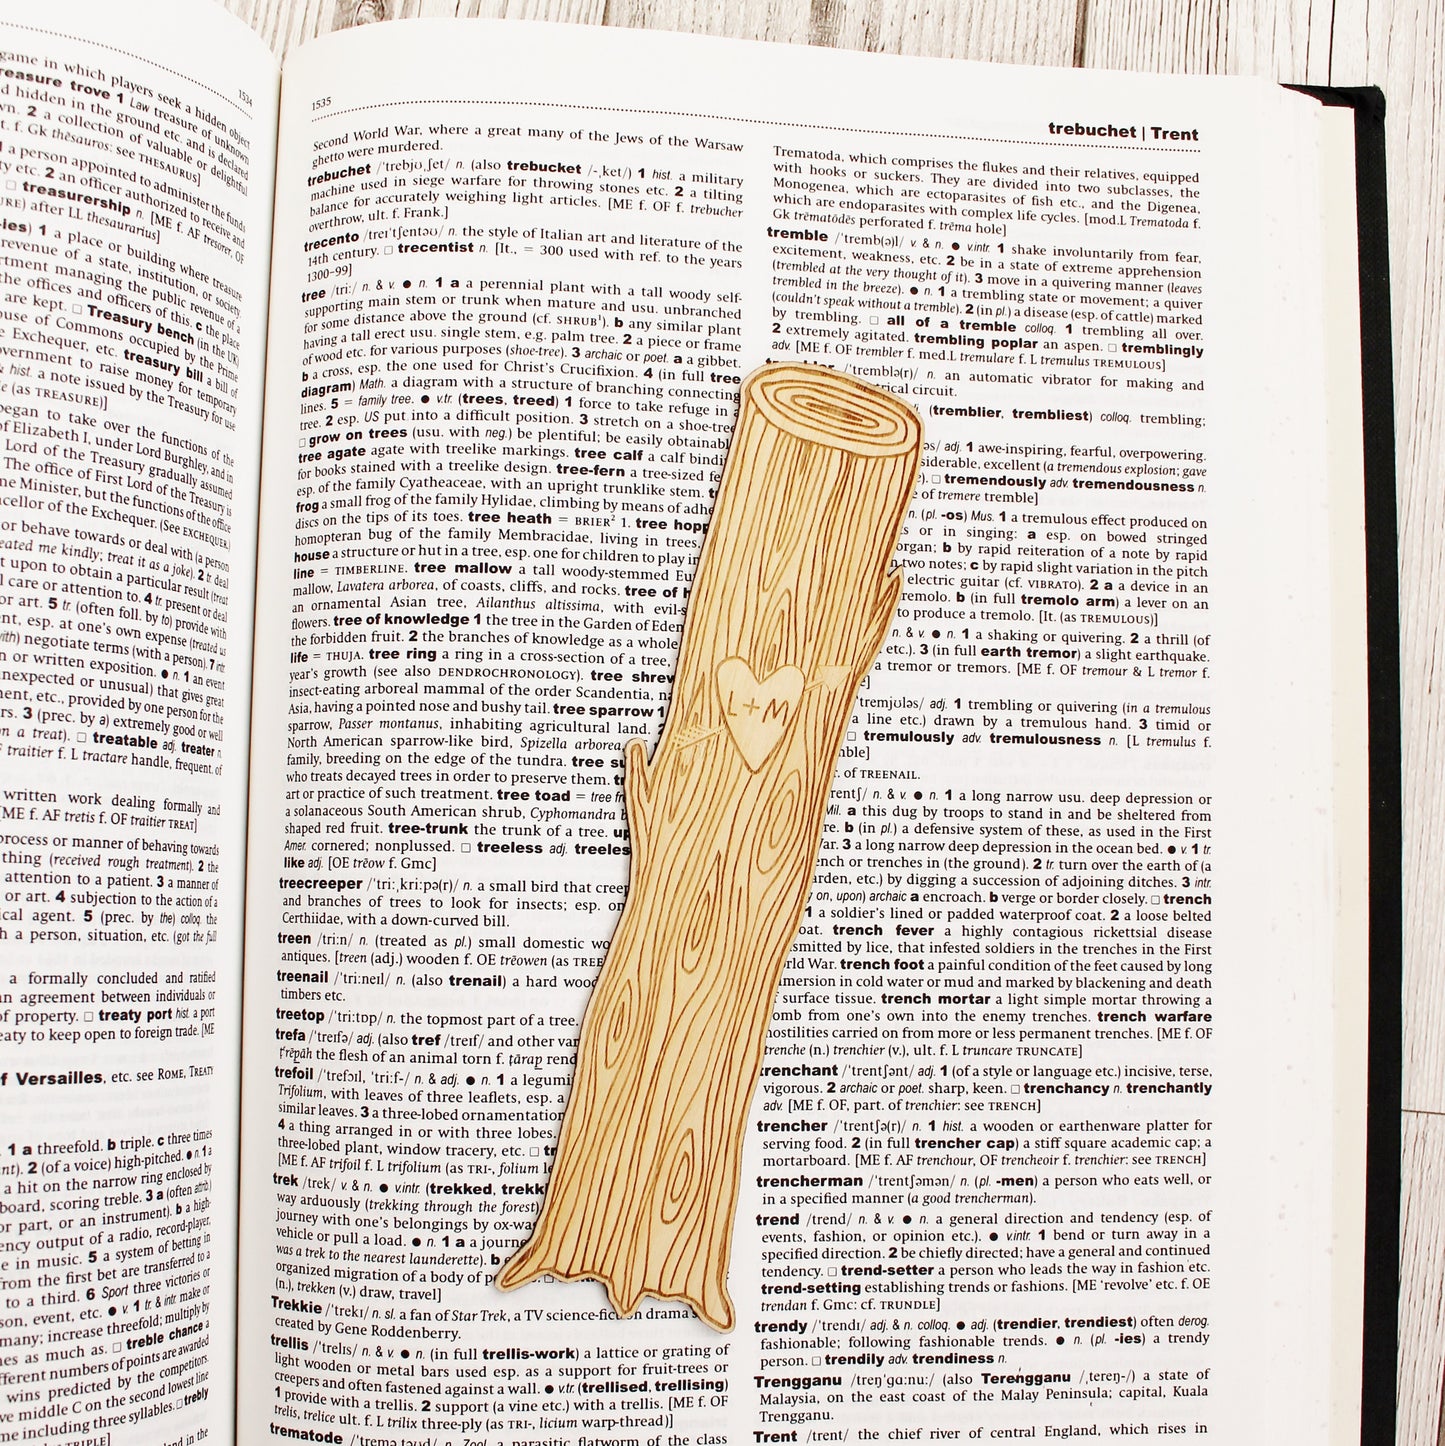 game in which players seek a hidden object
reasure trove 1 Law treasure of unknown
d hidden in the ground etc. and is declared
wn. 2 a collection of valuable or delightful
t. f. Gk thēsauros: see THESAURUS]
l a person appointed to administer the funds
ty etc. 2 an officer authorized to receive and
□ treasurership n. [ME f. AF tresorer, OF
URE) after LL thesaurarius]
-ies) 1 a place or building where treasure
revenue of a state, institution, or society.
rtment managing the public revenue of a
the offices and officers of this. c the place
are kept. □ Treasury bench (in the UK)
ouse of Commons occupied by the Prime
e Exchequer, etc. treasury bill a bill of
vernment to raise money for temporary
hist. a note issued by the Treasury for use
e (as TREASURE)]
began to take over the functions of the
f Elizabeth I, under Lord Burghley, and in
Lord of the Treasury gradually assumed
The office of First Lord of the Treasury is
ne Minister, but the functions of the office
ncellor of the Exchequer. (See EXCHEQUER.)
or behave towards or deal with (a person
eated me kindly; treat it as a joke). 2 tr. deal
t upon to obtain a particular result (treat
l care or attention to. 4 tr. present or deal
or art. 5 tr. (often foll. by to) provide with
ent, esp. at one's own expense (treated us
with) negotiate terms (with a person). 7 intr.
n or written exposition. ● n. 1 an event
nexpected or unusual) that gives great
ment, etc., provided by one person for the
rs. 3 (prec. by a) extremely good or well
n a treat). □ treatable adj. treater n.
F traitier f. L tractare handle, frequent. of
written work dealing formally and
[ME f. AF tretis f. OF traitier TREAT]
process or manner of behaving towards
thing (received rough treatment). 2 the
attention to a patient. 3 a manner of
or art. 4 subjection to the action of a
ical agent. 5 (prec. by the) colloq. the
h a person, situation, etc. (got the full
a formally concluded and ratified
an agreement between individuals or
of property. □ treaty port hist. a port
eaty to keep open to foreign trade. [ME
f Versailles, etc. see ROME, TREATY
1 a threefold. b triple. c three times
nt). 2 (of a voice) high-pitched. ● n. 1 a
a hit on the narrow ring enclosed by
board, scoring treble. 3 a (often attrib.)
or part, or an instrument). b a high-
ency output of a radio, record-player,
e in music. 5 a system of betting in
from the first bet are transferred to a
to a third. 6 Sport three victories or
son, event, etc. ● v. 1 tr. & intr. make or
many; increase threefold; multiply by
es as much as. □ treble chance a
fferent numbers of points are awarded
wins predicted by the competitors.
ve middle C on the second lowest line
me including three syllables. □ trebly
TRIPLE]
1534
1535
trebuchet | Trent
Second World War, where a great many of the Jews of the Warsaw
ghetto were murdered.
trebuchet /ˈtrebjʊˌʃet/ n. (also trebucket /-ˌket/) 1 hist. a military
machine used in siege warfare for throwing stones etc. 2 a tilting
balance for accurately weighing light articles. [ME f. OF f. trebucher
overthrow, ult. f. Frank.]
trecento /treɪˈtʃentəʊ/ n. the style of Italian art and literature of the
14th century. □ trecentist n. [It., = 300 used with ref. to the years
1300–99]
tree /triː/ n. & v. ● n. 1 a a perennial plant with a tall woody self-
supporting main stem or trunk when mature and usu. unbranched
for some distance above the ground (cf. SHRUB¹). b any similar plant
having a tall erect usu. single stem, e.g. palm tree. 2 a piece or frame
of wood etc. for various purposes (shoe-tree). 3 archaic or poet. a a gibbet.
b a cross, esp. the one used for Christ's Crucifixion. 4 (in full tree
diagram) Math. a diagram with a structure of branching connecting
lines. 5 = family tree. ● v.tr. (trees, treed) 1 force to take refuge in a
tree. 2 esp. US put into a difficult position. 3 stretch on a shoe-tree.
□ grow on trees (usu. with neg.) be plentiful; be easily obtainabl
tree agate agate with treelike markings. tree calf a calf bindi
for books stained with a treelike design. tree-fern a tree-sized fe
esp. of the family Cyatheaceae, with an upright trunklike stem. t
frog a small frog of the family Hylidae, climbing by means of adhe
discs on the tips of its toes. tree heath = BRIER² 1. tree hopp
homopteran bug of the family Membracidae, living in trees.
house a structure or hut in a tree, esp. one for children to play in
line = TIMBERLINE. tree mallow a tall woody-stemmed Eu
mallow, Lavatera arborea, of coasts, cliffs, and rocks. tree of h
an ornamental Asian tree, Ailanthus altissima, with evil-s
flowers. tree of knowledge 1 the tree in the Garden of Eden
the forbidden fruit. 2 the branches of knowledge as a whole
life = THUJA. tree ring a ring in a cross-section of a tree,
year's growth (see also DENDROCHRONOLOGY). tree shrew
insect-eating arboreal mammal of the order Scandentia, na
Asia, having a pointed nose and bushy tail. tree sparrow 1
sparrow, Passer montanus, inhabiting agricultural land.
North American sparrow-like bird, Spizella arborea,
family, breeding on the edge of the tundra. tree su
who treats decayed trees in order to preserve them. t
art or practice of such treatment. tree toad = tree fr
a solanaceous South American shrub, Cyphomandra b
shaped red fruit. tree-trunk the trunk of a tree. up
Amer. cornered; nonplussed. □ treeless adj. treeles
like adj. [OE trēow f. Gmc]
treecreeper /ˈtriːˌkriːpə(r)/ n. a small bird that creep
and branches of trees to look for insects; esp. on
Certhiidae, with a down-curved bill.
treen /triːn/ n. (treated as pl.) small domestic wo
antiques. [treen (adj.) wooden f. OE trēowen (as TREE
treenail /ˈtriːneɪl/ n. (also trenail) a hard wood
timbers etc.
treetop /ˈtriːtɒp/ n. the topmost part of a tree.
trefa /ˈtreɪfə/ adj. (also tref /treɪf/ and other var
ṭ'rēpāh the flesh of an animal torn f. ṭārap rend
trefoil /ˈtrefɔɪl, ˈtriːf-/ n. & adj. ● n. 1 a legumi
Trifolium, with leaves of three leaflets, esp. a
similar leaves. 3 a three-lobed ornamentation
4 a thing arranged in or with three lobes.
three-lobed plant, window tracery, etc. □ tr
[ME f. AF trifoil f. L trifolium (as TRI-, folium le
trek /trek/ v. & n. ● v.intr. (trekked, trekk
way arduously (trekking through the forest)
journey with one's belongings by ox-wa
vehicle or pull a load. ● n. 1 a a journe
was a trek to the nearest launderette). b e
organized migration of a body of p
(n.), trekken (v.) draw, travel]
Trekkie /ˈtrekɪ/ n. sl. a fan of Star Trek, a TV science-fiction drama s
created by Gene Roddenberry.
trellis /ˈtrelɪs/ n. & v. ● n. (in full trellis-work) a lattice or grating of
light wooden or metal bars used esp. as a support for fruit-trees or
creepers and often fastened against a wall. ● v.tr. (trellised, trellising)
1 provide with a trellis. 2 support (a vine etc.) with a trellis. [ME f. OF
trelis, trelice ult. f. L trilix three-ply (as TRI-, licium warp-thread)]
trematode /ˈtreməˌtəʊd/ n. Zool. a parasitic flatworm of the class
Trematoda, which comprises the flukes and their relatives, equipped
with hooks or suckers. They are divided into two subclasses, the
Monogenea, which are ectoparasites of fish etc., and the Digenea,
which are endoparasites with complex life cycles. [mod.L Trematoda f.
Gk trēmatōdēs perforated f. trēma hole]
tremble /ˈtremb(ə)l/ v. & n. ● v.intr. 1 shake involuntarily from fear,
excitement, weakness, etc. 2 be in a state of extreme apprehension
(trembled at the very thought of it). 3 move in a quivering manner (leaves
trembled in the breeze). ● n. 1 a trembling state or movement; a quiver
(couldn't speak without a tremble). 2 (in pl.) a disease (esp. of cattle) marked
by trembling. □ all of a tremble colloq. 1 trembling all over.
2 extremely agitated. trembling poplar an aspen. □ tremblingly
adv. [ME f. OF trembler f. med.L tremulare f. L tremulus TREMULOUS]
/ˈtremblə(r)/ n. an automatic vibrator for making and
rical circuit.
(tremblier, trembliest) colloq. trembling;
əs/ adj. 1 awe-inspiring, fearful, overpowering.
siderable, excellent (a tremendous explosion; gave
). □ tremendously adv. tremendousness n.
e of tremere tremble]
n. (pl. -os) Mus. 1 a tremulous effect produced on
s or in singing: a esp. on bowed stringed
organ; b by rapid reiteration of a note by rapid
n two notes; c by rapid slight variation in the pitch
electric guitar (cf. VIBRATO). 2 a a device in an
remolo. b (in full tremolo arm) a lever on an
to produce a tremolo. [It. (as TREMULOUS)]
n. & v. ● n. 1 a shaking or quivering. 2 a thrill (of
etc.). 3 (in full earth tremor) a slight earthquake.
a tremor or tremors. [ME f. OF tremour & L tremor f.
e]
ˈtremjʊləs/ adj. 1 trembling or quivering (in a tremulous
a line etc.) drawn by a tremulous hand. 3 timid or
□ tremulously adv. tremulousness n. [L tremulus f.
mble]
. of TREENAIL.
rentʃ/ n. & v. ● n. 1 a long narrow usu. deep depression or
Mil. a this dug by troops to stand in and be sheltered from
re. b (in pl.) a defensive system of these, as used in the First
War. 3 a long narrow deep depression in the ocean bed. ● v. 1 tr.
ench or trenches in (the ground). 2 tr. turn over the earth of (a
arden, etc.) by digging a succession of adjoining ditches. 3 intr.
y on, upon) archaic a encroach. b verge or border closely. □ trench
1 a soldier's lined or padded waterproof coat. 2 a loose belted
oat. trench fever a highly contagious rickettsial disease
smitted by lice, that infested soldiers in the trenches in the First
rld War. trench foot a painful condition of the feet caused by long
mmersion in cold water or mud and marked by blackening and death
f surface tissue. trench mortar a light simple mortar throwing a
omb from one's own into the enemy trenches. trench warfare
hostilities carried on from more or less permanent trenches. [ME f. OF
trenche (n.) trenchier (v.), ult. f. L truncare TRUNCATE]
trenchant /ˈtrentʃənt/ adj. 1 (of a style or language etc.) incisive, terse,
vigorous. 2 archaic or poet. sharp, keen. □ trenchancy n. trenchantly
adv. [ME f. OF, part. of trenchier: see TRENCH]
trencher /ˈtrentʃə(r)/ n. 1 hist. a wooden or earthenware platter for
serving food. 2 (in full trencher cap) a stiff square academic cap; a
mortarboard. [ME f. AF trenchour, OF trencheoir f. trenchier: see TRENCH]
trencherman /ˈtrentʃəmən/ n. (pl. -men) a person who eats well, or
in a specified manner (a good trencherman).
trend /trend/ n. & v. ● n. a general direction and tendency (esp. of
events, fashion, or opinion etc.). ● v.intr. 1 bend or turn away in a
specified direction. 2 be chiefly directed; have a general and continued
tendency. □ trend-setter a person who leads the way in fashion etc.
trend-setting establishing trends or fashions. [ME 'revolve' etc. f. OE
trendan f. Gmc: cf. TRUNDLE]
trendy /ˈtrendɪ/ adj. & n. colloq. ● adj. (trendier, trendiest) often derog.
fashionable; following fashionable trends. ● n. (pl. -ies) a trendy
person. □ trendily adv. trendiness n.
Trengganu /treŋˈɡɑːnuː/ (also Terengganu /ˌtereŋ-/) a state of
Malaysia, on the east coast of the Malay Peninsula; capital, Kuala
Trengganu.
Trent /trent/ the chief river of central England, which rises in
L+M